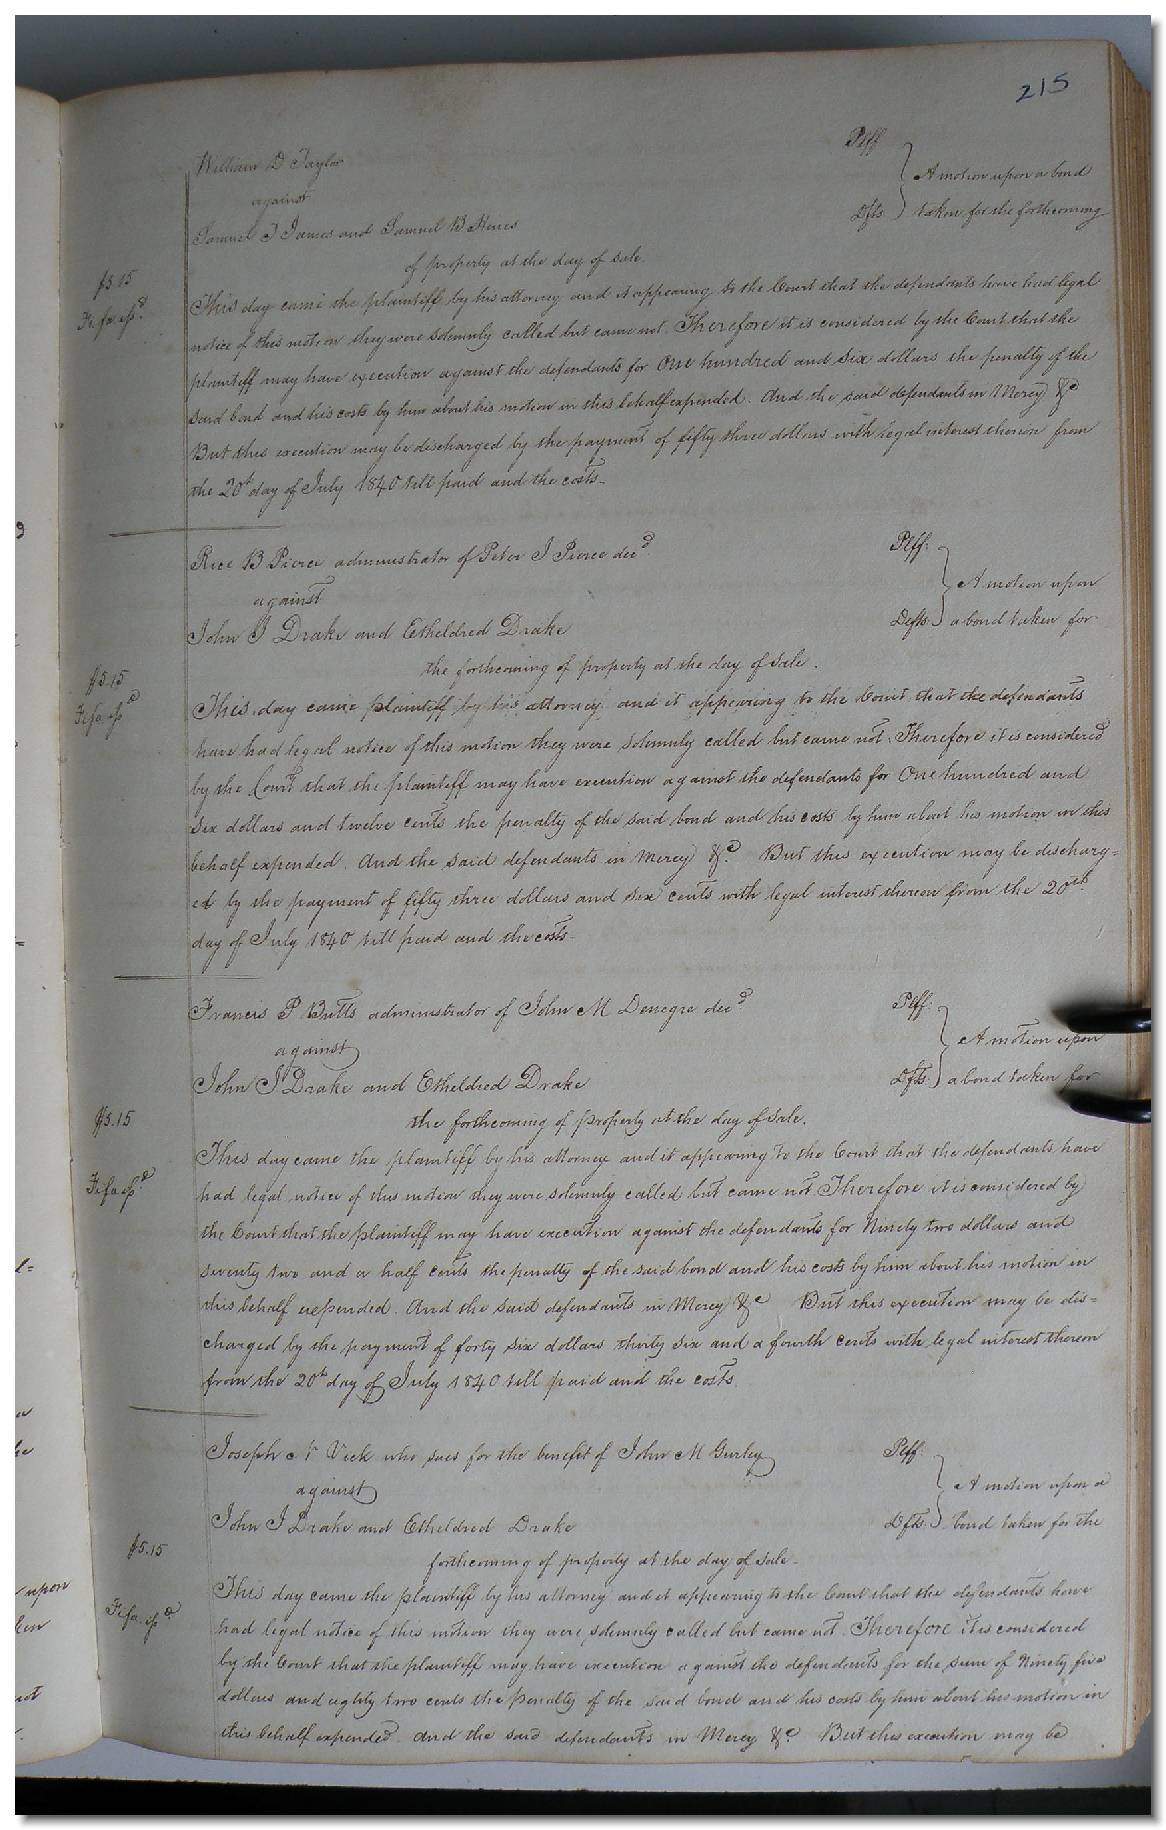 215
William D Taylor Plff
against A motion upon a bond
Samuel J James and Samuel B Hines Dfts taken for the forthcoming
of property at the day of sale.
$5.15
This day came the plaintiff by his attorney and it appearing to the Court that the defendants have had legal
Fi. fa. isd
notice of this motion they were solemnly called but came not. Therefore it is considered by the Court that the
plaintiff may have execution against the defendants for One hundred and six dollars the penalty of the
said bond and his costs by him about his motion in this behalf expended. And the said defendants in Mercy &c
But this execution may be discharged by the payment of fifty three dollars with legal interest thereon from
the 20th day of July 1840 till paid and the costs-
Rice B Pierce administrator of Peter J Pierce decd Plff.
against A motion upon
John J Drake and Etheldred Drake Defts. a bond taken for
the forthcoming of property at the day of sale.
$5.15
This day came plaintiff by his attorney and it appearing to the Court that the defendants
Fi fa. isd
have had legal notice of this motion they were solemnly called but came not. Therefore it is considered
by the Court that the plaintiff may have execution against the defendants for One hundred and
six dollars and twelve cents the penalty of the said bond and his costs by him about his motion in this
behalf expended. And the said defendants in Mercy &c. But this execution may be discharg=
ed by the payment of fifty three dollars and six cents with legal interest thereon from the 20th
day of July 1840 till paid and the costs-
Francis P Butts administrator of John M Denegre decd Plff.
against A motion upon
John J Drake and Etheldred Drake Dfts. a bond taken for
the forthcoming of property at the day of sale.
$5.15
This day came the plaintiff by his attorney and it appearing to the Court that the defendants have
Fi fa isd
had legal notice of this motion they were solemnly called but came not Therefore it is considered by
the Court that the plaintiff may have execution against the defendants for Ninety two dollars and
seventy two and a half cents the penalty of the said bond and his costs by him about his motion in
this behalf expended. And the said defendants in Mercy &c But this execution may be dis=
charged by the payment of forty six dollars thirty six and a fourth cents with legal interest thereon
from the 20th day of July 1840 till paid and the costs.
Joseph Vick who sues for the benefit of John M Gurley Plff.
against A motion upon a
John J Drake and Etheldred Drake Dfts. bond taken for the
forthcoming of property at the day of sale-
$5.15
This day came the plaintiff by his attorney and it appearing to the Court that the defendants have
Fi fa. isd
had legal notice of this motion they were solemnly called but came not. Therefore it is considered
by the Court that the plaintiff may have execution against the defendants for the sum of Ninety five
dollars and eighty two cents the penalty of the said bond and his costs by him about his motion in
this behalf expended. And the said defendants in Mercy &c But this execution may be